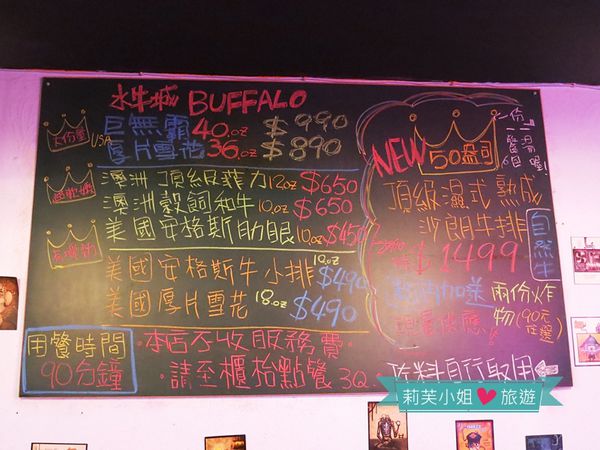 水牛城 BUFFALO
大份量
USA
巨無霸 40.oz $990
厚片雪花 36.oz $890
澳洲頂級菲力 12oz $650
澳洲穀飼和牛 10.oz $650
美國安格斯肋眼 10.oz $450
美國安格斯牛小排 10.oz $490
美國厚片雪花 18.oz $490
用餐時間
90分鐘
·本店不收服務費·
·請至櫃枱點餐 3Q.
NEW
50盎司
頂級濕式熟成
沙朗牛排
自然牛
$1499
兩份炸
物(90元
任選)
料自行取用
莉芙小姐 旅遊